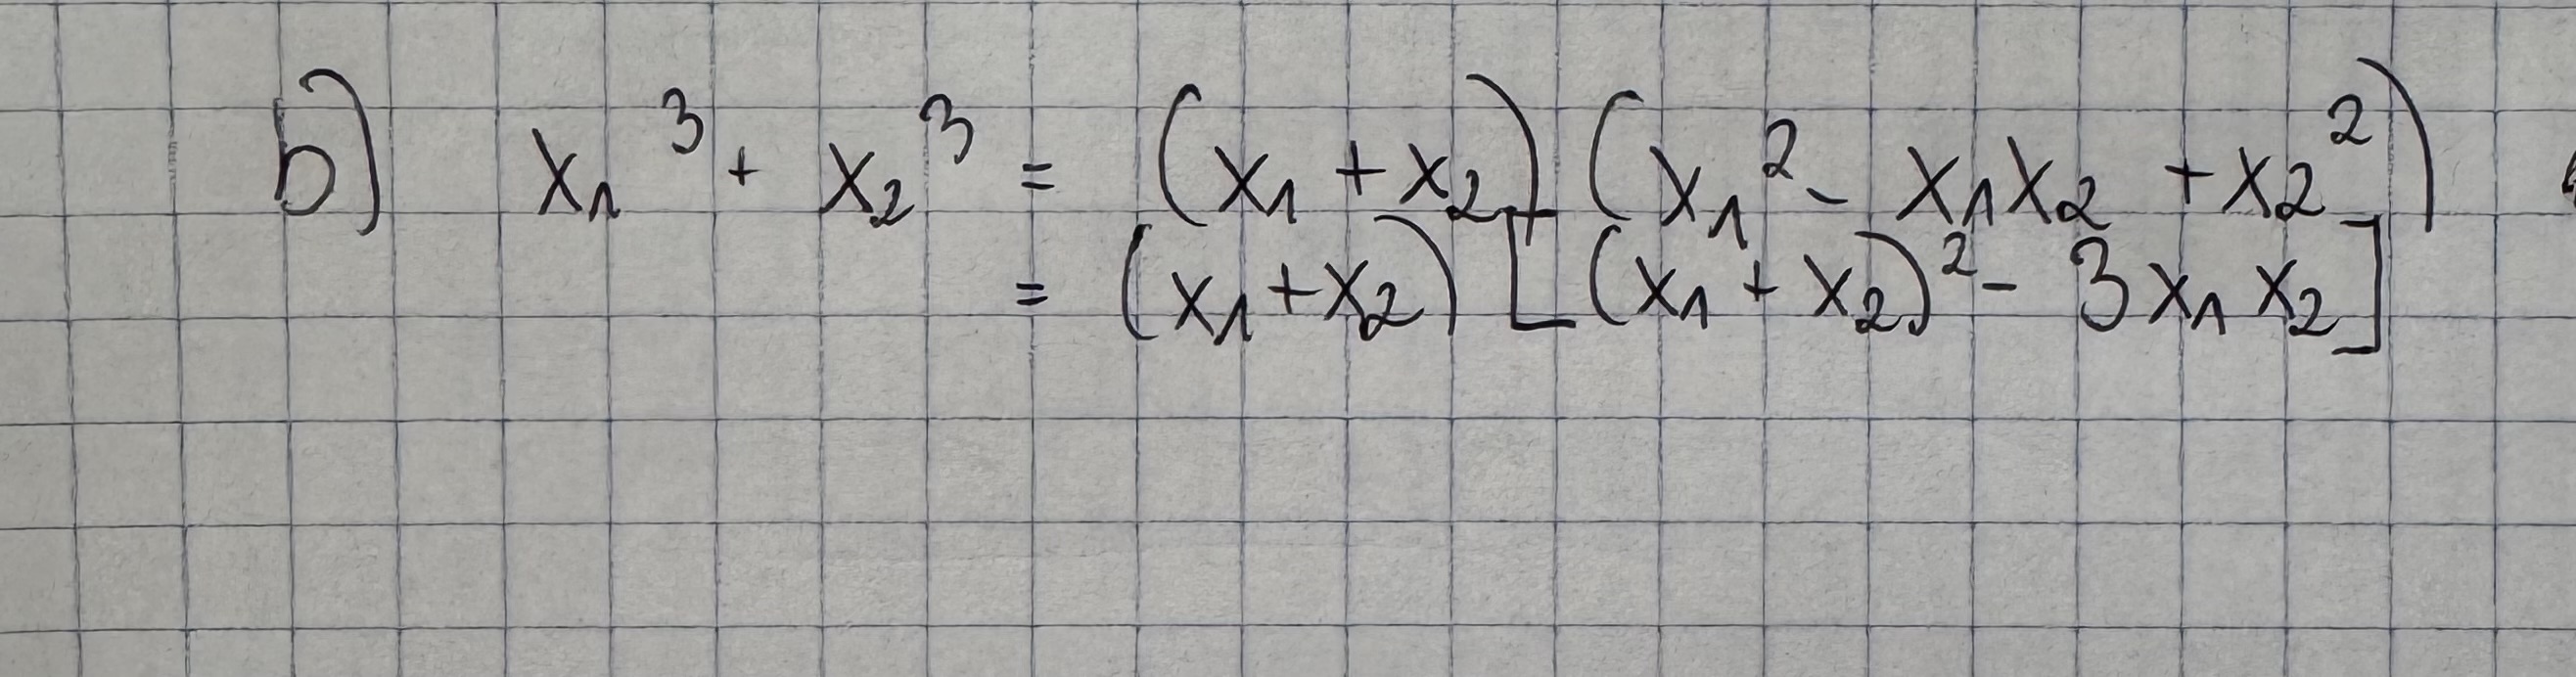 b) x₁³ + x₂³ = (x₁ + x₂) (x₁² - x₁x₂ + x₂²)
= (x₁ + x₂) [(x₁ + x₂)² - 3x₁x₂]